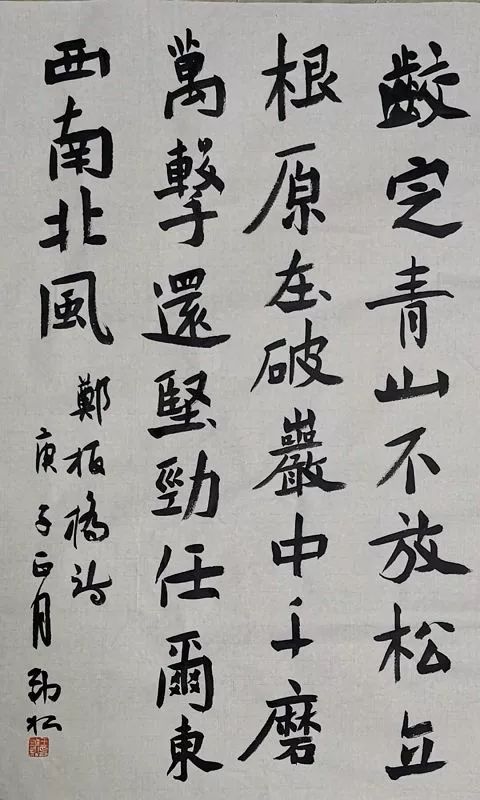 齩定青山不放松立
根原在破巖中千磨
萬擊還堅勁任爾東
西南北風
鄭板橋詩
庚子正月 勁松